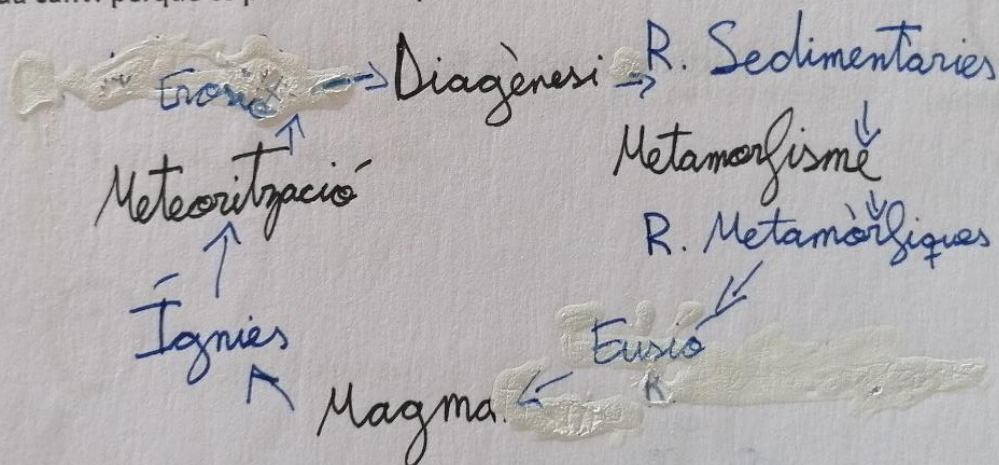 Erosió → Diagènesi → R. Sedimentàries
Meteorització
Metamorfisme
R. Metamòrfiques
Ígnies
Fusió
Magma